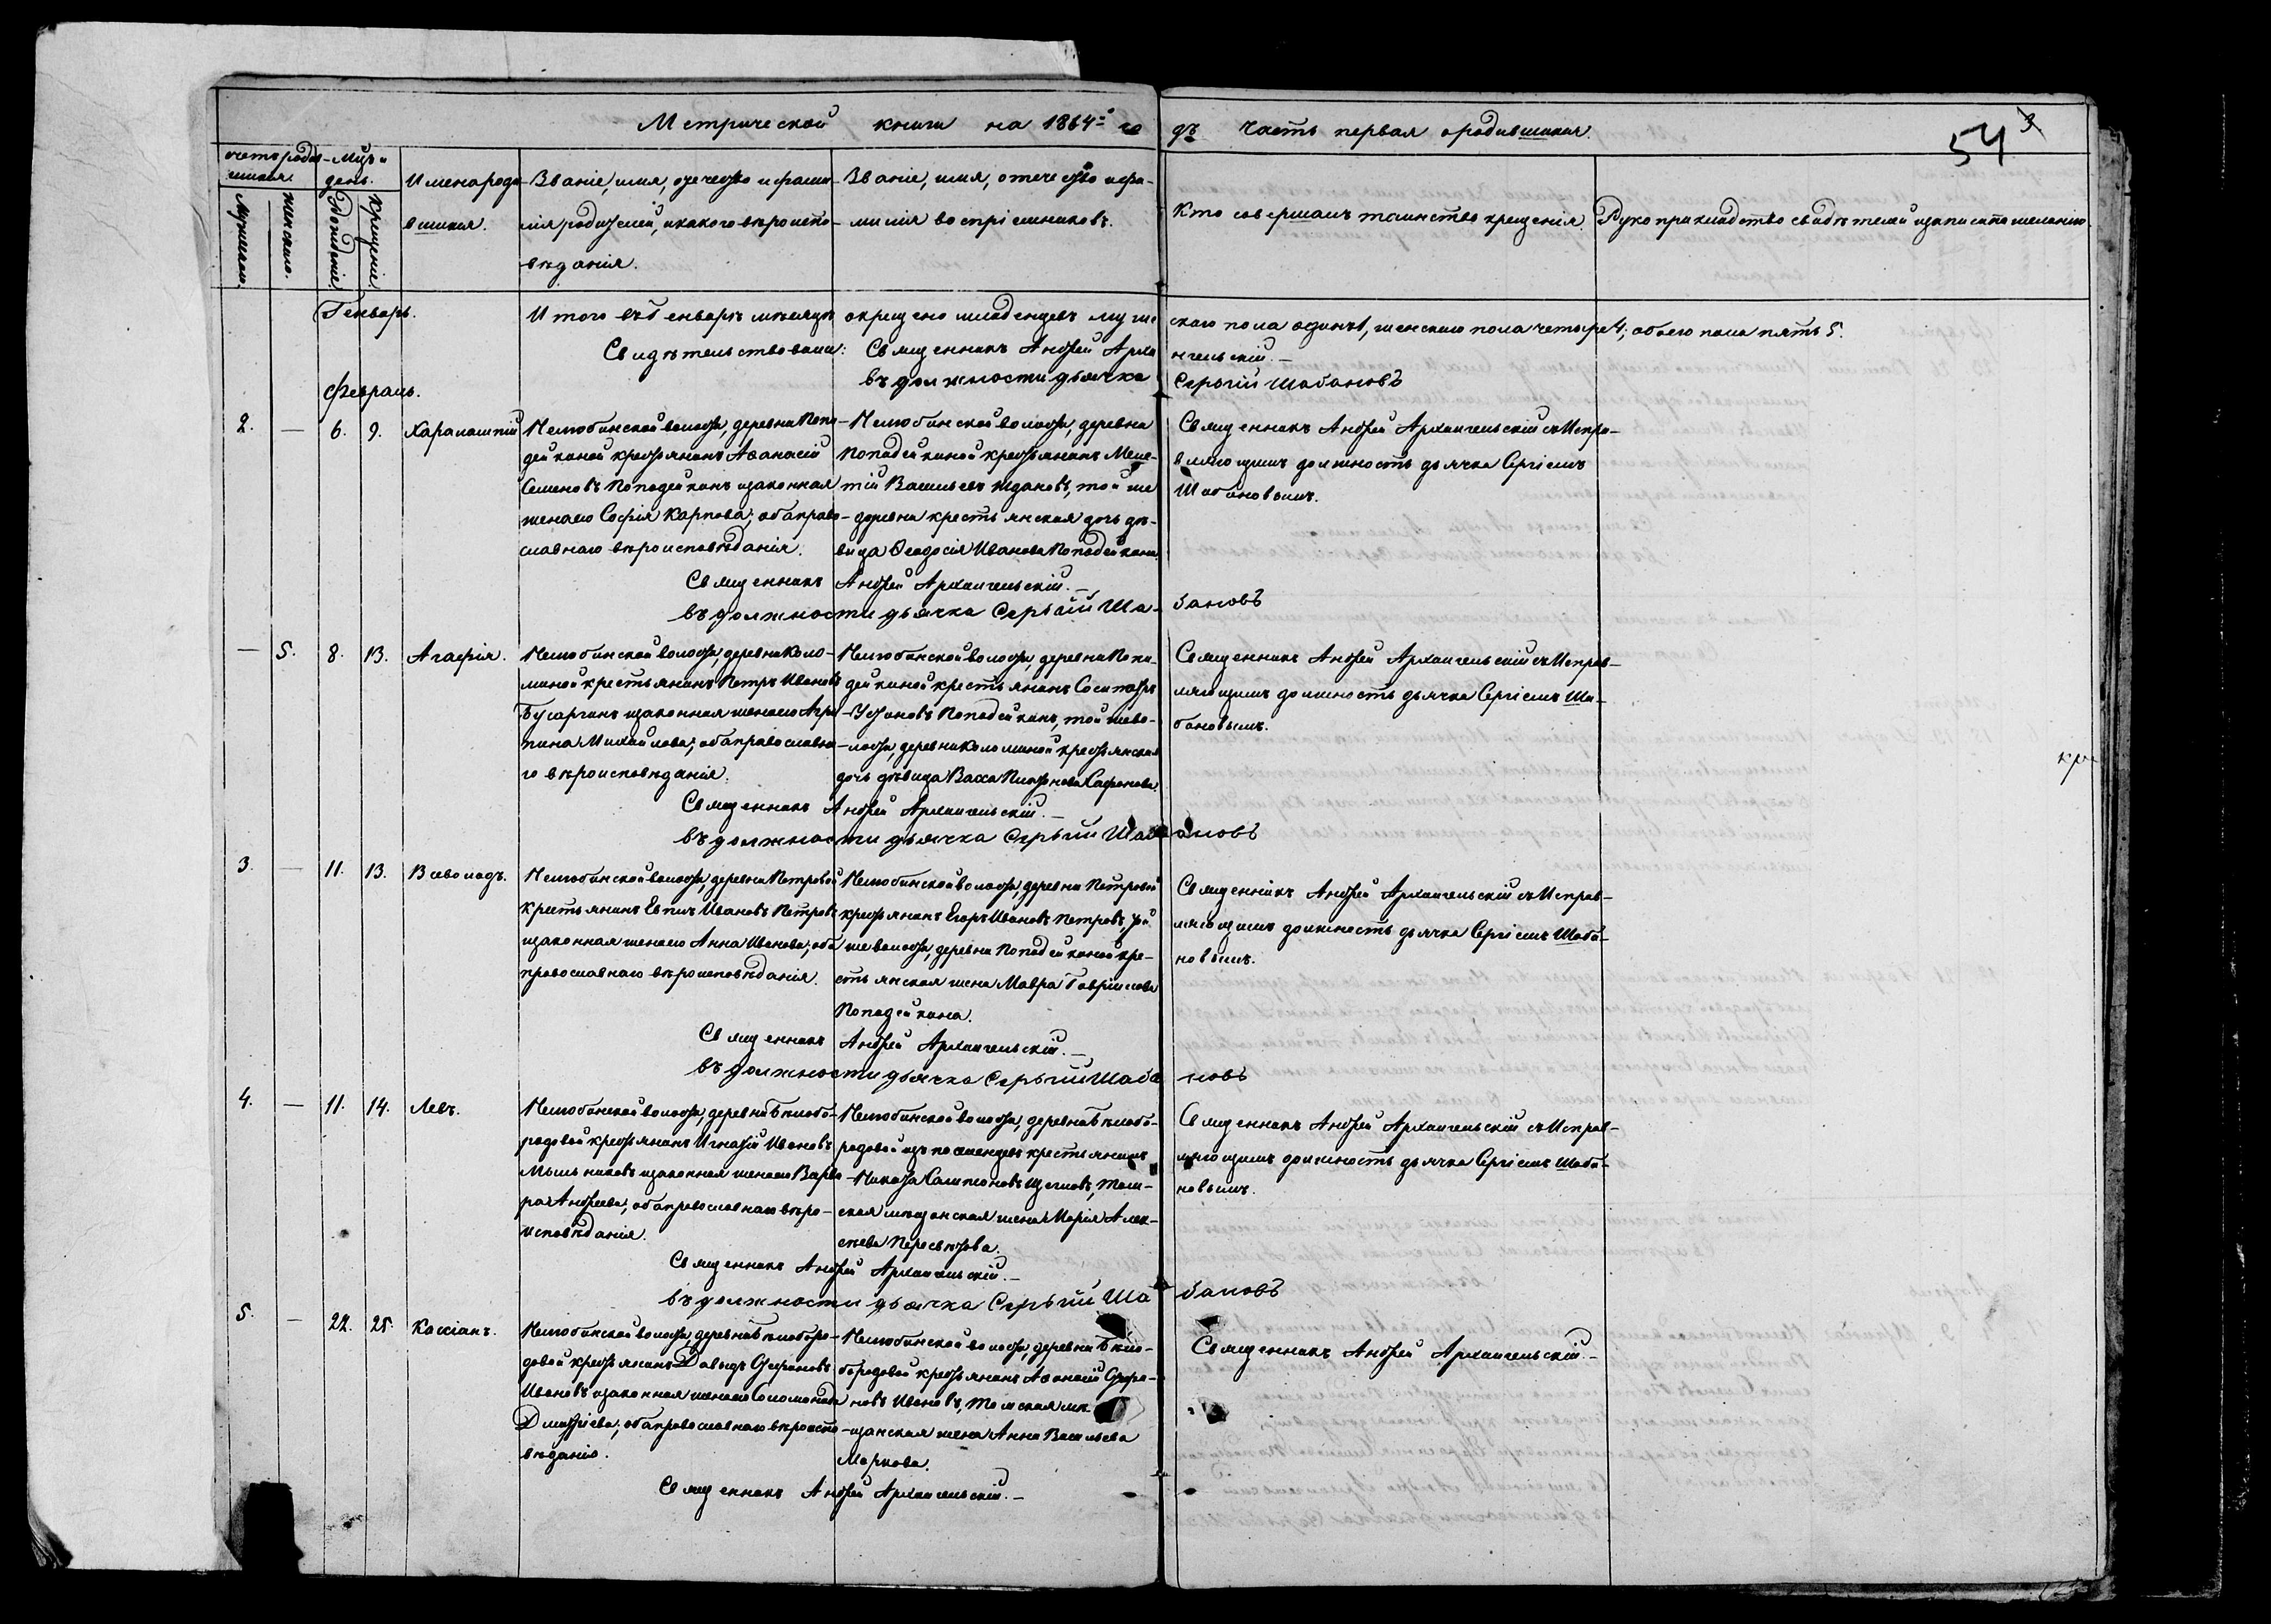 Метрической книги на 1864й го дъ часть первая о родившихся.
54 3
Счетъ родив-
шихся.
Мужескаго.
Женскаго.
Мѣц. и
день.
Рожденіе
Крещеніе.
Имена роди-
вшихся.
Званіе, имя, отечество и фами-
лія родителей, и какого вѣроиспо-
вѣданія.
Званіе, имя, отечество и фа-
милія воспріемниковъ.
Кто совершалъ таинство крещенія.
Рукоприкладство свидѣтелей записи по желанію.
Генварь.
Итого въ Генварѣ мѣсяцѣ окрещено младенцевъ муже скаго пола одинъ 1, женскаго пола четыре 4; обоего пола пять 5.
Свидѣтельствовали: Священникъ Андрей Арха нгельскій.—
въ должности дьячка Сергій Шабановъ
Февраль.
2. — 6. 9. Харалампій
Нелюбинской волости, деревни Попа-
дейкиной крестьянинъ Аѳанасій
Семеновъ Попадейкинъ и законная
жена его Софія Карпова; оба право-
славнаго вѣроисповѣданія.
Нелюбинской волости, деревни
Попадейкиной крестьянинъ Меле-
тій Васильевъ Ждановъ, той же
деревни крестьянская дочь дѣ-
вица Ѳеодосія Иванова Попадейкина.
Священникъ Андрей Архангельскій съ Испра-
вляющимъ должность дьячка Сергіемъ
Шабановымъ.
Священникъ Андрей Архангельскій.—
въ должности дьячка Сергій Ша- бановъ
— 5. 8. 13. Агафія.
Нелюбинской волости, деревни Коло-
миной крестьянинъ Петръ Ивановъ
Бусаргинъ и законная жена его Агри-
пина Михайлова; оба православна-
го вѣроисповѣданія.
Нелюбинской волости, деревни Попа-
дейкиной крестьянинъ Сосипатръ
Устиновъ Попадейкинъ, той же во-
лости, деревни Коломиной крестьянская
дочь дѣвица Васса Платонова Сафронова.
Священникъ Андрей Архангельскій съ Исправ-
ляющимъ должность дьячка Сергіемъ Ша-
бановымъ.
Священникъ Андрей Архангельскій.—
въ должности дьячка Сергій Шаб ановъ
3. — 11. 13. Всеволодъ.
Нелюбинской волости, деревни Петровой
крестьянинъ Евпилъ Ивановъ Петровъ
и законная жена его Анна Иванова; оба
православнаго вѣроисповѣданія.
Нелюбинской волости, деревни Петровой
крестьянинъ Егоръ Ивановъ Петровъ, той
же волости, деревни Попадейкиной кре-
стьянская жена Мавра Гавріилова
Попадейкина.
Священникъ Андрей Архангельскій съ Исправ-
ляющимъ должность дьячка Сергіемъ Шаба-
новымъ.
Священникъ Андрей Архангельскій.—
въ должности дьячка Сергій Шаба новъ
4. — 11. 14. Левъ.
Нелюбинской волости, деревни Бѣлобо-
родовой крестьянинъ Игнатій Ивановъ
Мыльниковъ и законная жена его Варва-
ра Андреева; оба православнаго вѣро-
исповѣданія.
Нелюбинской волости, деревни Бѣлобо-
родовой изъ поселенцевъ крестьянинъ
Никита Капитоновъ Щегловъ, Том-
ская мѣщанская жена Марія Алек-
сѣева Пересвѣтова.
Священникъ Андрей Архангельскій съ Исправ-
ляющимъ должность дьячка Сергіемъ Шаба-
новымъ.
Священникъ Андрей Архангельскій.—
въ должности дьячка Сергій Ша бановъ
5. — 22. 25. Кассіанъ.
Нелюбинской волости, деревни Бѣлоборо-
довой крестьянинъ Давыдъ Стефановъ
Ивановъ и законная жена его Соломонида
Дмитріева; оба православнаго вѣроиспо-
вѣданія.
Нелюбинской волости, деревни Бѣло-
бородовой крестьянинъ Аѳанасій Стефа-
новъ Ивановъ, Томская мѣ-
щанская жена Анна Васильева
Маркова.
Священникъ Андрей Архангельскій.—
Священникъ Андрей Архангельскій.—